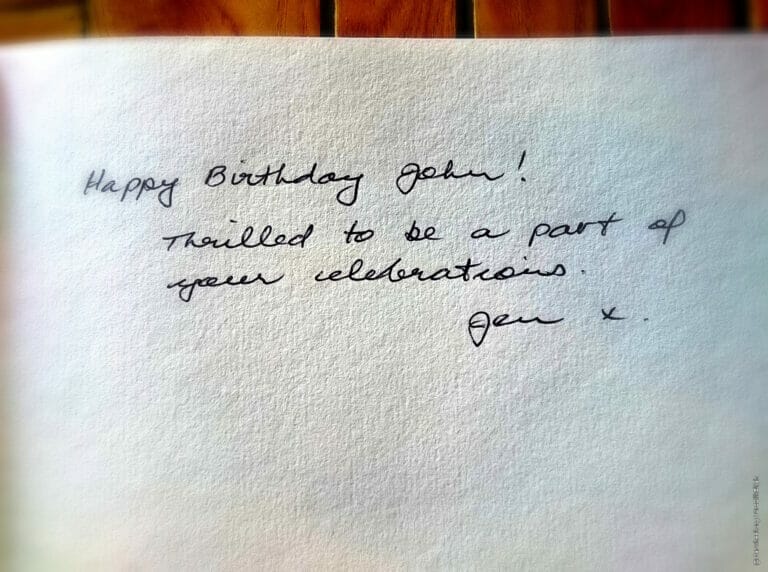 Happy Birthday John!
Thrilled to be a part of
your celebrations.
Jen x.